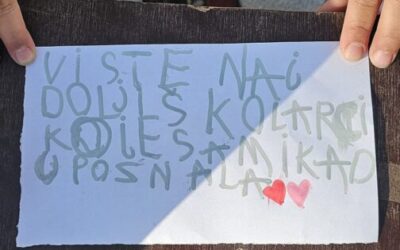 VI STE NAJ
DOLJI ŠKOLARCI
KOJE SAM IKAD
UPOSNALA